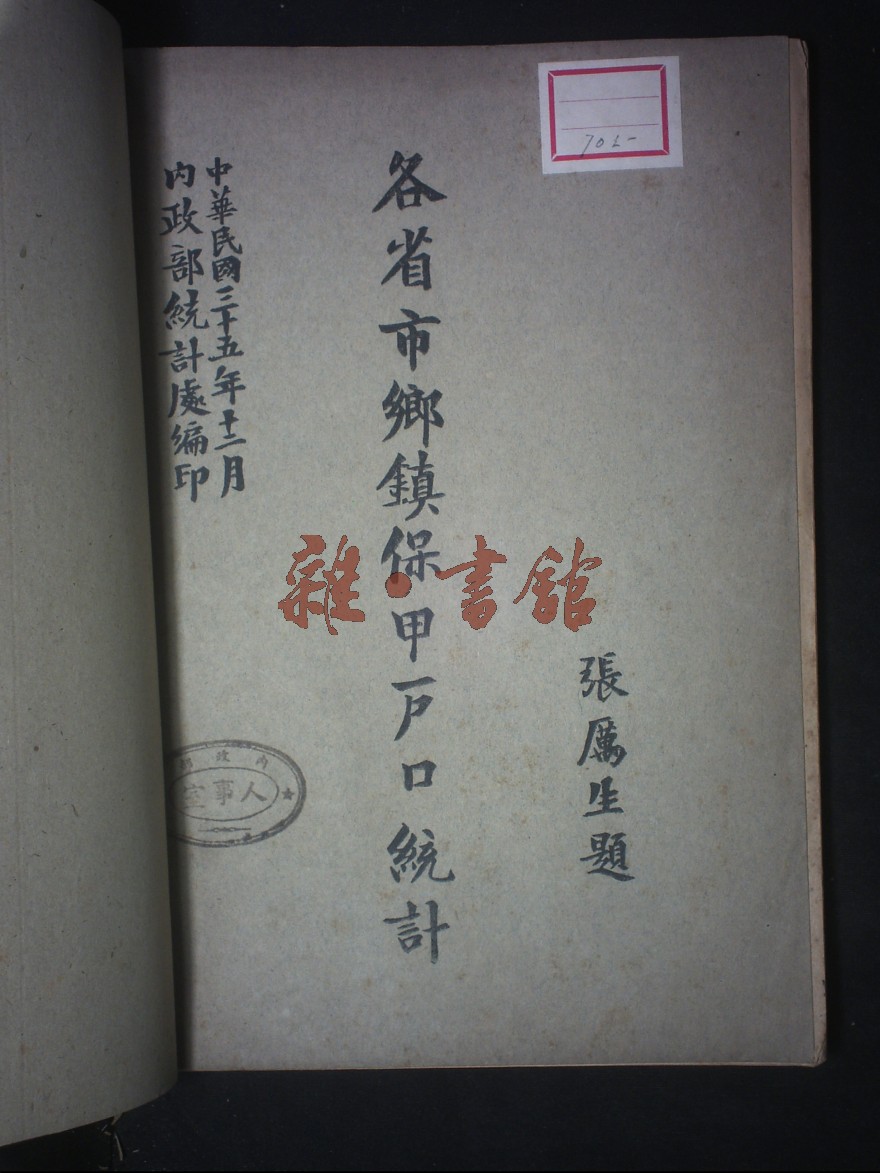 張厲生題
各省市鄉鎮保甲戶口統計
中華民國三十五年十二月
內政部統計處編印
雜·書館
內政部
人事室